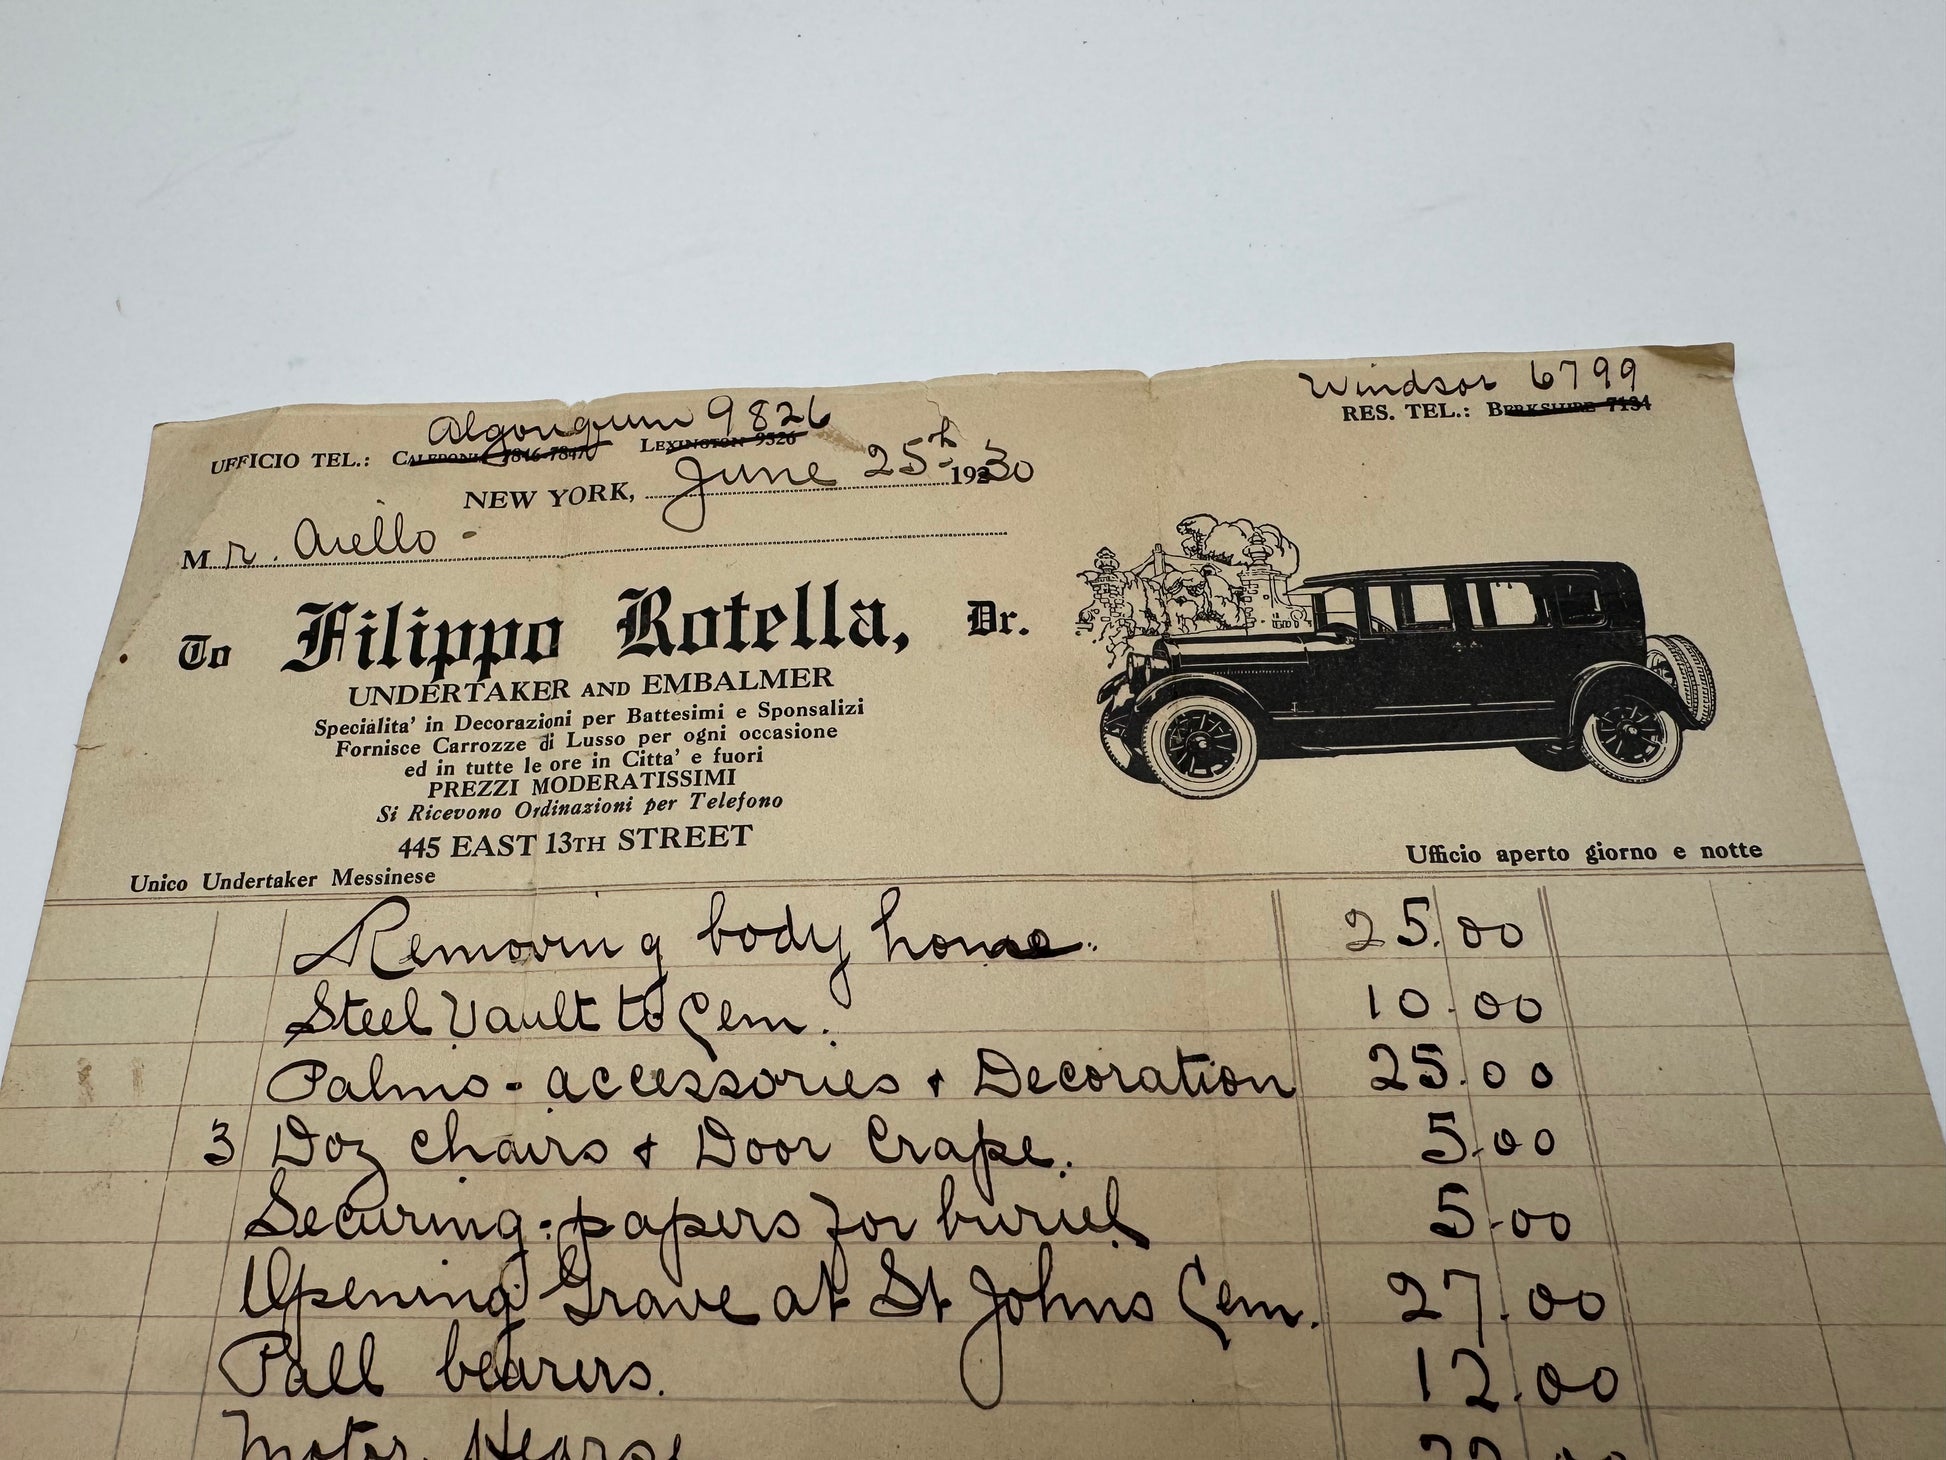 Windsor 6799
RES. TEL.: BERKSHIRE 7134
Algonquin 9826
UFFICIO TEL.: CALEDONIA 7846-7847 LEXINGTON 9326
NEW YORK, June 25th 1930
Mr. Aiello -
To Filippo Rotella, Dr.
UNDERTAKER AND EMBALMER
Specialita' in Decorazioni per Battesimi e Sponsalizi
Fornisce Carrozze di Lusso per ogni occasione
ed in tutte le ore in Citta' e fuori
PREZZI MODERATISSIMI
Si Ricevono Ordinazioni per Telefono
445 EAST 13TH STREET
Unico Undertaker Messinese
Ufficio aperto giorno e notte
Removing body home. 25.00
Steel Vault to Cem. 10.00
Palms - accessories & Decoration 25.00
3 Doz chairs & Door Crape. 5.00
Securing - papers for buriel 5.00
Opening Grave at St Johns Cem. 27.00
Pall bearers. 12.00
Motor Hearse